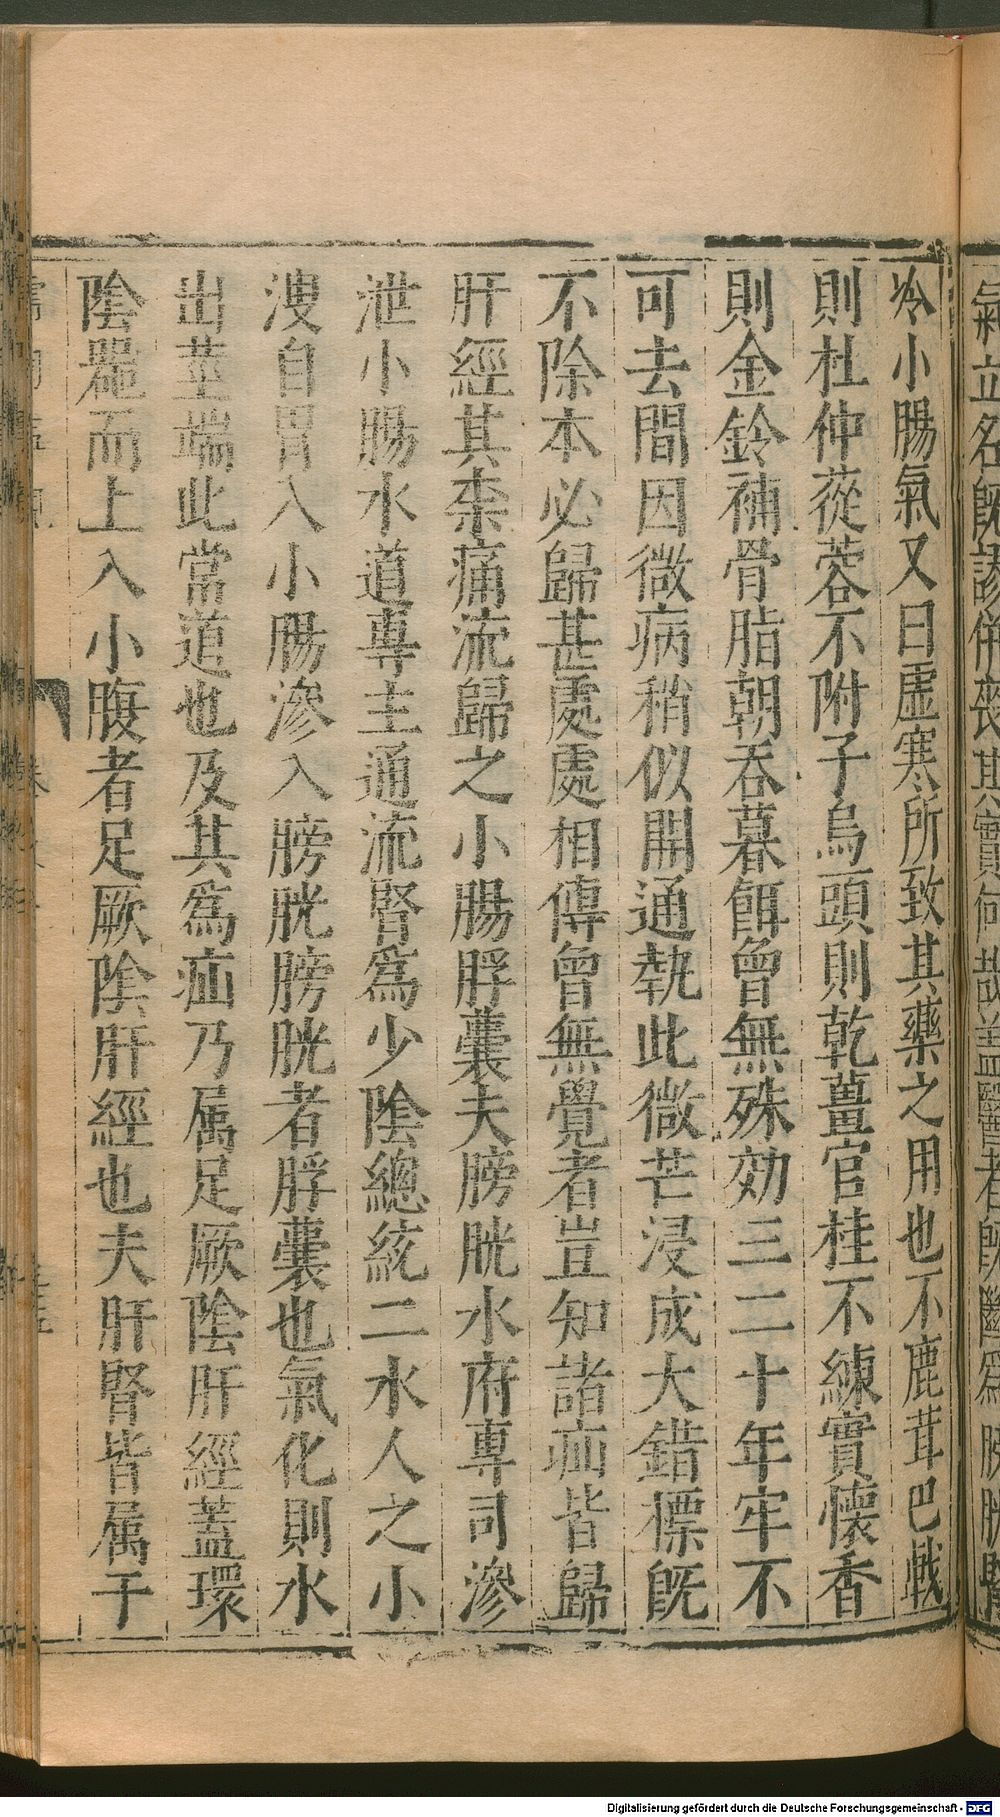 氣立名旣謬併喪其實何哉蓋醫者旣斷爲膀胱腎
冷小腸氣又曰虛寒所致其藥之用也不鹿茸巴戟
則杜仲蓯蓉不附子烏頭則乾薑官桂不練實懷香
則金鈴補骨脂朝吞暮餌曾無殊効三二十年牢不
可去間因微病稍似開通執此微芒浸成大錯標旣
不除本必歸甚處處相傳曾無覺者豈知諸疝皆歸
肝經其柰痛流歸之小腸脬囊夫膀胱水府專司滲
泄小腸水道專主通流腎爲少陰總統二水人之小
溲自胃入小腸滲入膀胱膀胱者脬囊也氣化則水
出莖端此常道也及其爲疝乃属足厥陰肝經蓋環
陰器而上入小腹者足厥陰肝經也夫肝腎皆属于
Digitalisierung gefördert durch die Deutsche Forschungsgemeinschaft - DFG